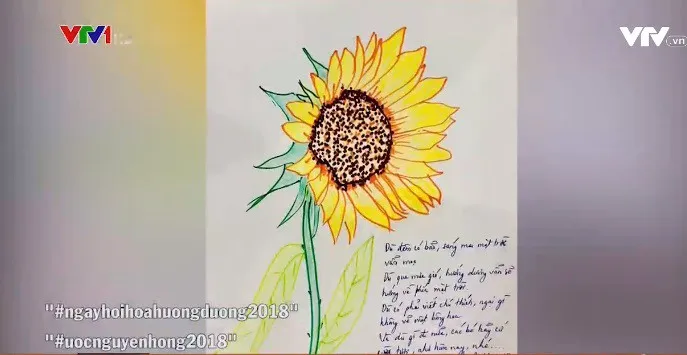 VTV1
VTV.vn
Dù đêm có bão, sáng mai mặt trời
vẫn mọc
Dù qua mưa gió, hướng dương vẫn sẽ
hướng về phía mặt trời.
Dù có phải viết chú thích, ngại gì
không vẽ một bông hoa
Và dù gì đi nữa, các bé hãy cứ
như hôm nay, nhé....
"#ngayhoihoahuongduong2018"
"#uocnguyenhong2018"